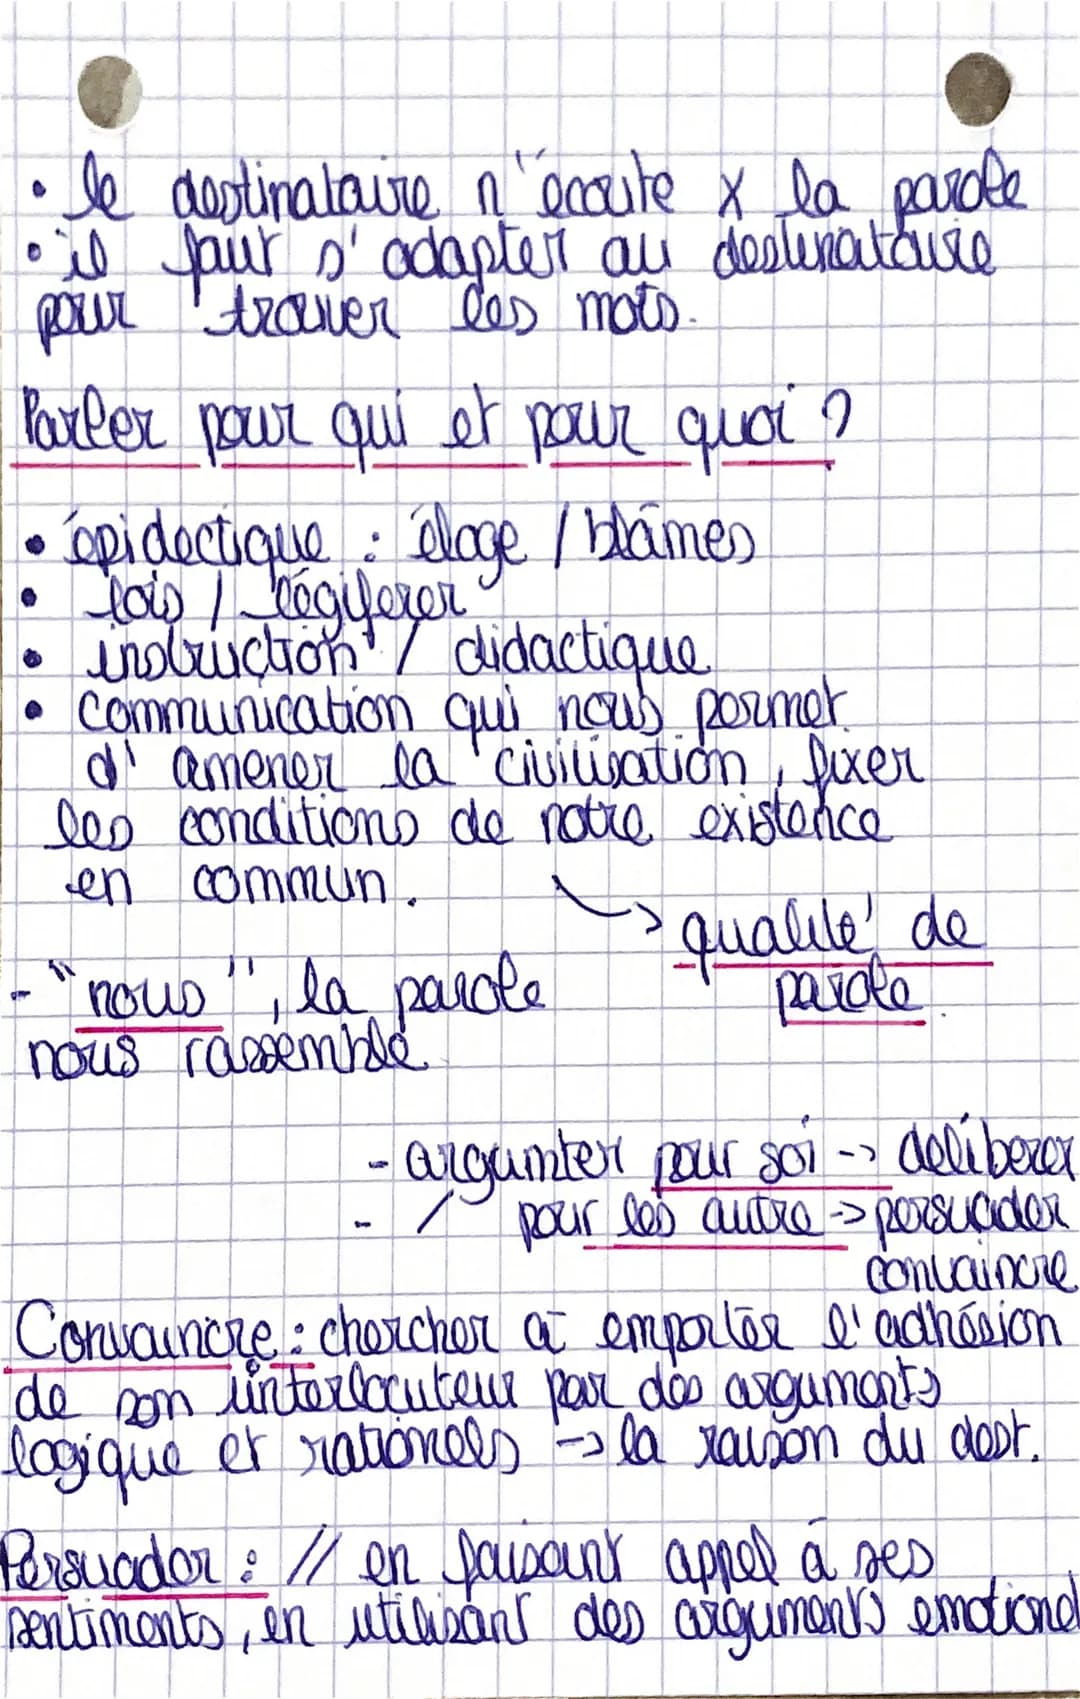 • le destinataire n'écoute x la parole
• il faut s'adapter au destinataire
pour trouver les mots.
Parler pour qui et pour quoi ?
• épidectique : éloge / blâmes
• lois / légiferer
• instruction / didactique
• communication qui nous permet
d'amener la civilisation, fixer
les conditions de notre existence
en commun.
-> qualité de
parole
- "nous", la parole
nous rassemble
- argumter pour soi -> deliberer
- / pour les autre -> persuader
convaincre
Convaincre : chercher à emporter l'adhésion
de son interlocuteur par des arguments
logique et rationnels -> la raison du dest.
Persuader : // en faisant appel à ses
sentiments, en utilisant des arguments emotionel